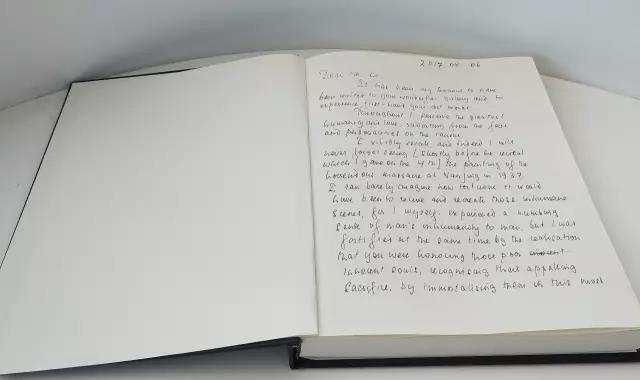 2017 08 06
Dear Mr. Li.
It has been my honour to have
been invited to your wonderful gallery and to
experience first-hand your art works
Throughout I perceive the greatest
humanity and love radiating from the faces
and personalities on the canvas
I visibly recall and indeed I will
never forget seeing [shortly before the recital
which I gave on the 4th] the painting of the
horrendous massacre at Nanjing in 1937.
I can barely imagine how it would
have been to relive and recreate those inhumane
scenes, for I myself experienced a numbing
sense of man's inhumanity to man, but I was
fortified at the same time by the realisation
that you were honouring those poor
innocent souls, recognising their appalling
sacrifice, by immortalising them in this most